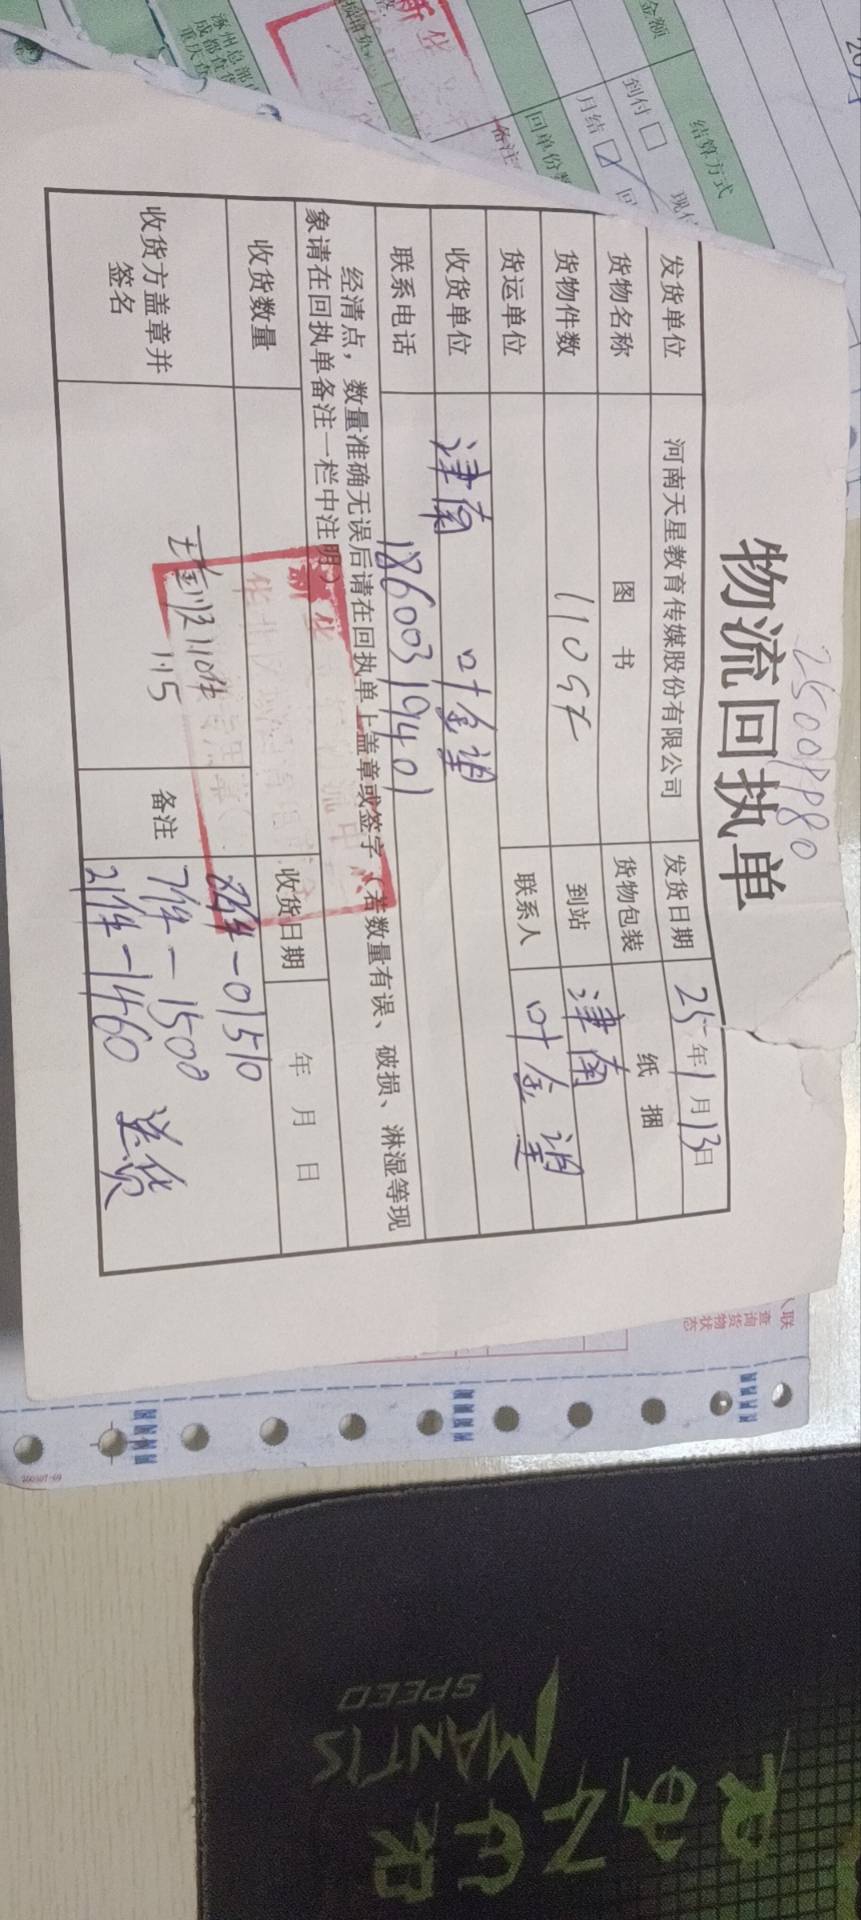 25009980
物流回执单
发货单位 河南天星教育传媒股份有限公司 发货日期 25年1月13日
货物名称 图书 货物包装 纸捆
货物件数 110件 到站 津南
货运单位 联系人 叶金望
收货单位 津南 叶金望
联系电话 18600319401
经清点，数量准确无误后请在回执单上盖章或签字（若数量有误、破损、淋湿等现
象请在回执单备注一栏中注明）
收货数量 收货日期 年 月 日
收货方盖章并
签名
110件
1.15
备注
件-01510
7件-1500
21件-1460
送货
金额
结算方式
到付
月结
现付
回单份数
备注
涿州总部
成都
重庆
新华
联
查询货物状态
MANTIS
SPEED